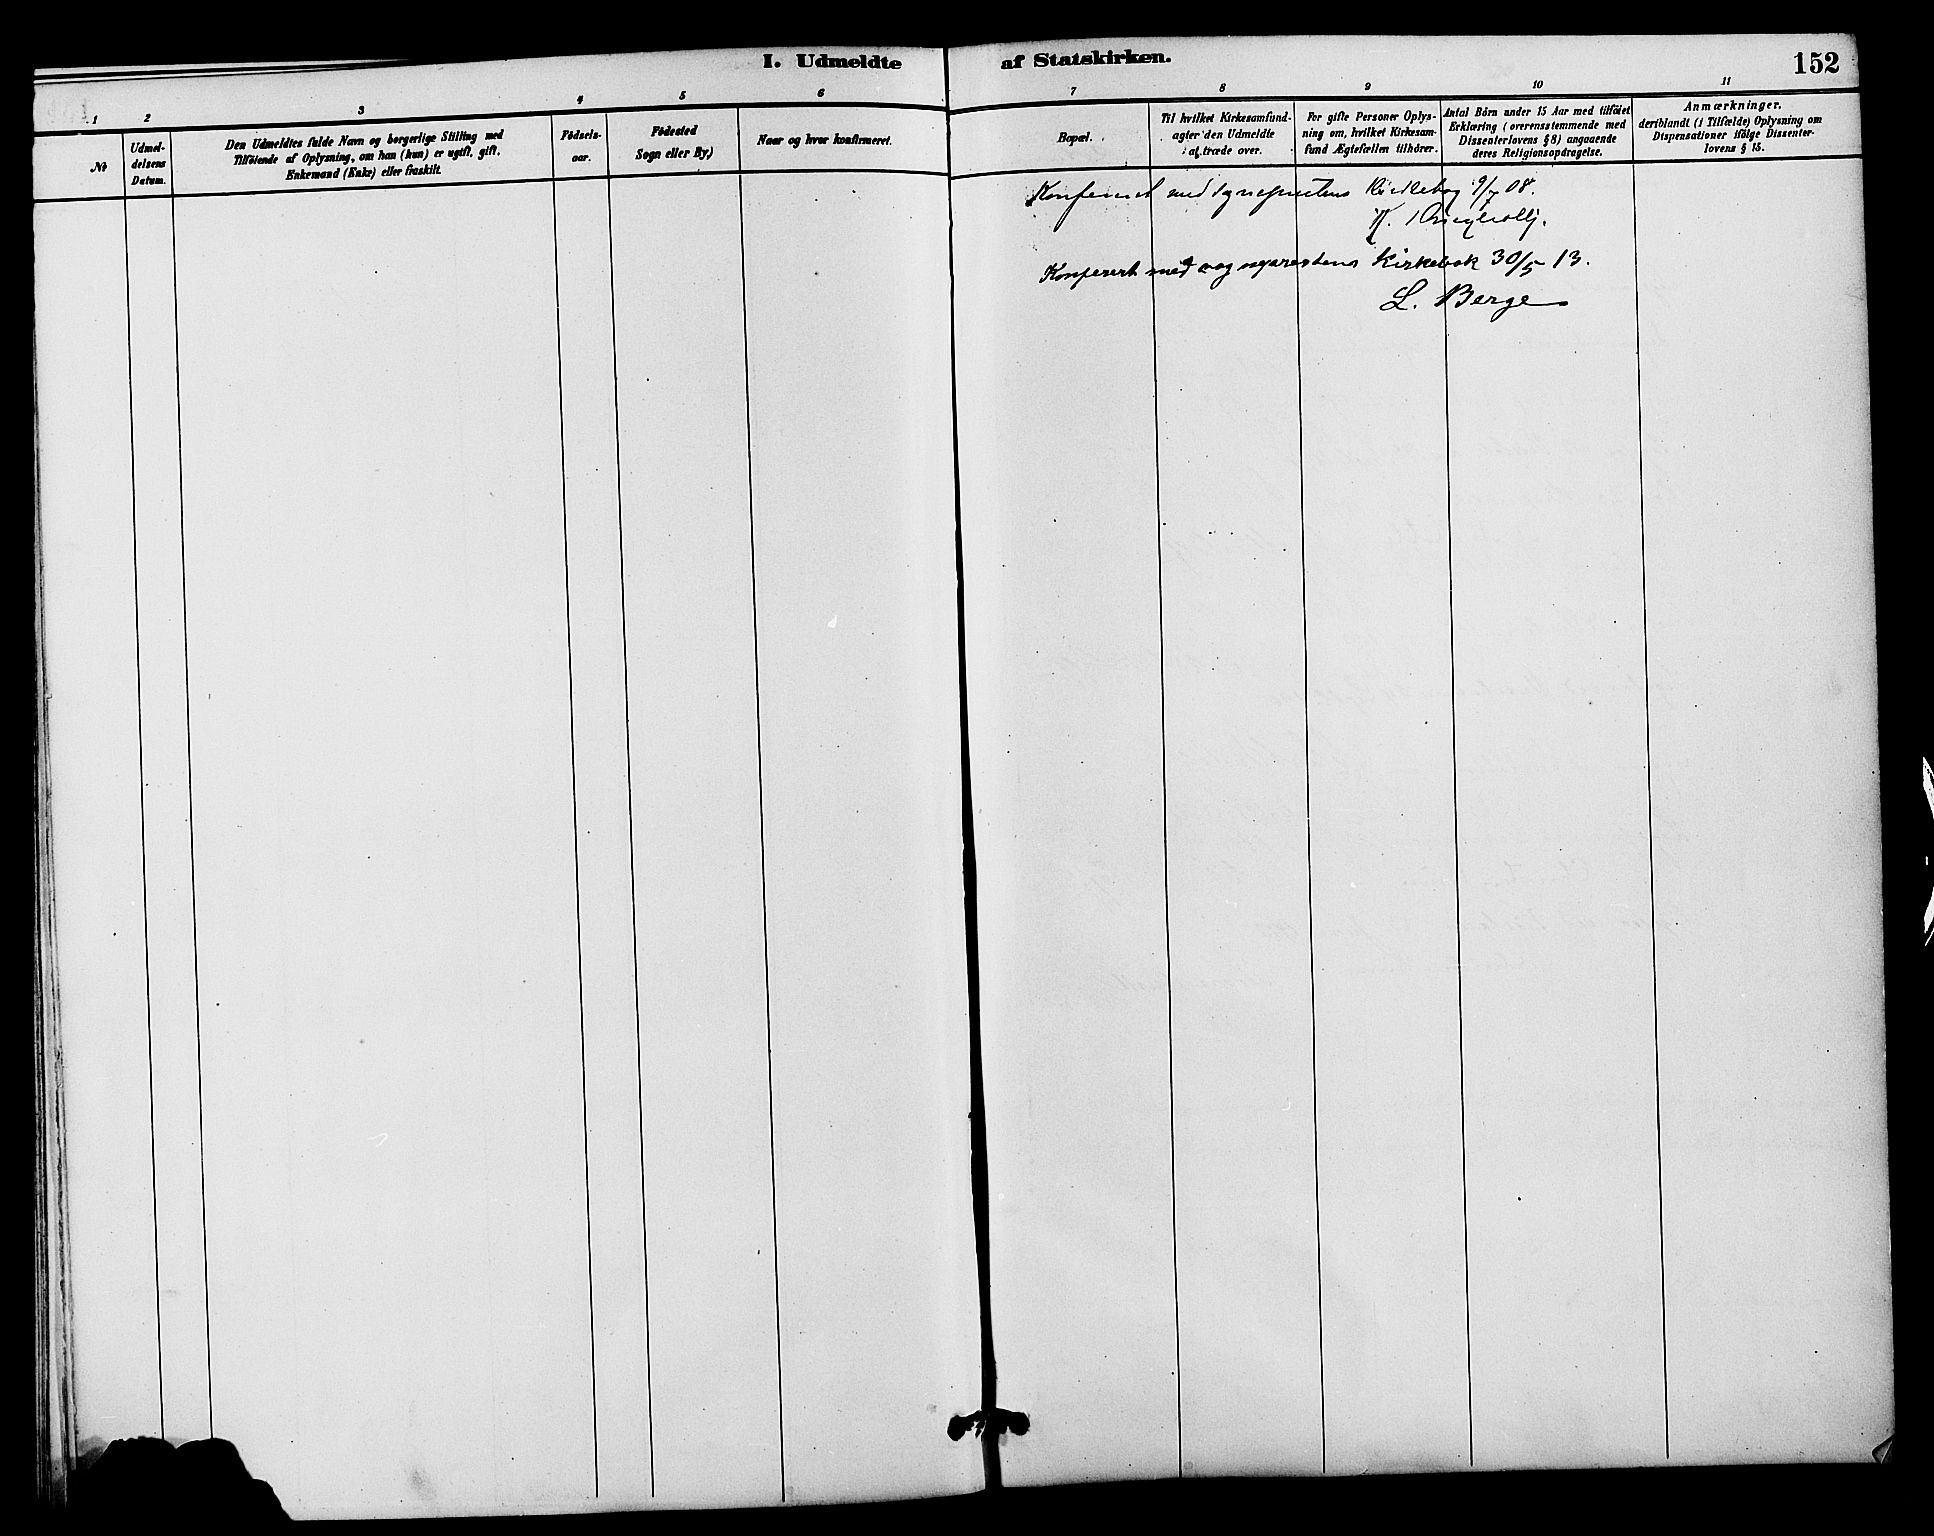 I. Udmeldte af Statskirken.
152
1 2 3 4 5 6 7 8 9 10 11
No
Udmel-
delsens
Datum.
Den Udmeldtes fulde Navn og borgerlige Stilling med
Tilföiende af Oplysning, om han (hun) er ugift, gift,
Enkemand (Enke) eller fraskilt.
Födsels-
aar.
Födested
Sogn eller By.)
Naar og hvor konfirmeret.
Bopæl.
Til hvilket Kirkesamfund
agter den Udmeldte
at træde over.
For gifte Personer Oplys-
ning om, hvilket Kirkesam-
fund Ægtefællen tilhörer.
Antal Börn under 15 Aar med tilföiet
Erklæring (overensstemmende med
Dissenterlovens § 8) angaaende
deres Religionsopdragelse.
Anmærkninger,
deriblandt (i Tilfælde) Oplysning om
Dispensationer ifölge Dissenter-
lovens § 15.
Konfereret med sognepræstens Kirkebog 9/7 08.
K.
Konferert med sogneprestens Kirkebok 30/5 13.
L. Berge